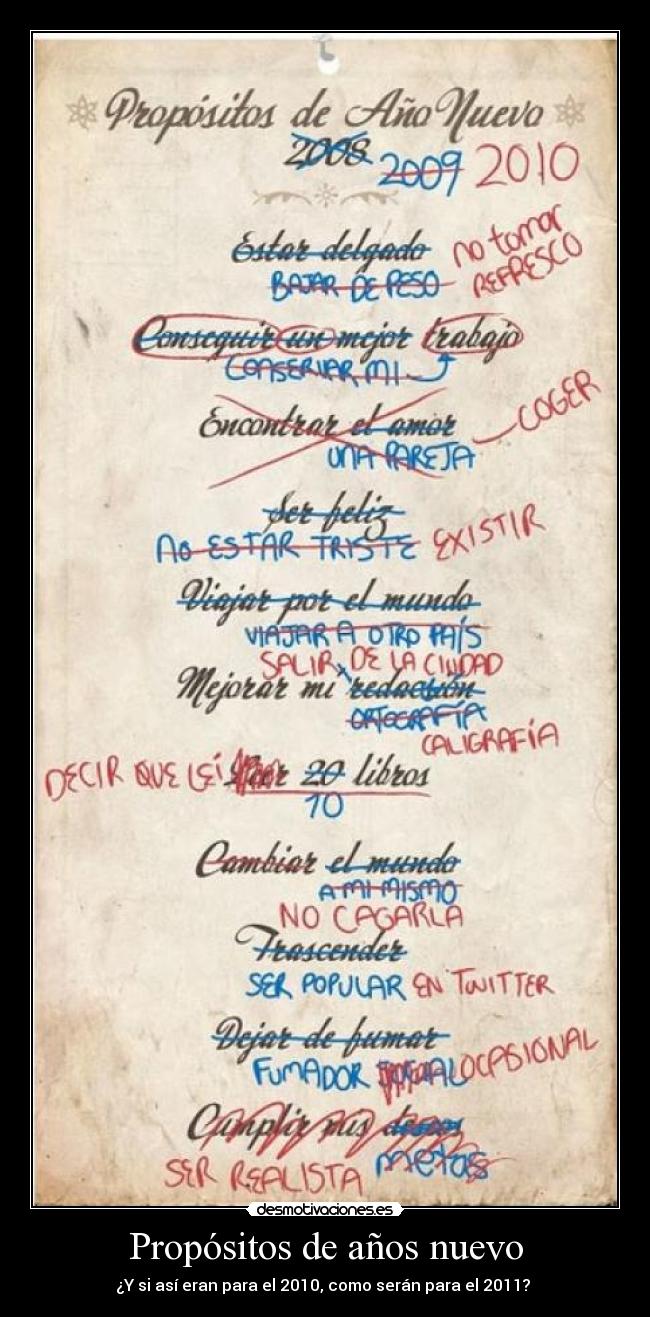 Propósitos de Año Nuevo
2008 2009 2010
Estar delgado
no tomar
REFRESCO
BAJAR DE PESO
Conseguir un mejor trabajo
CONSERVAR MI
Encontrar el amor
COGER
UNA PAREJA
Ser feliz
NO ESTAR TRISTE EXISTIR
Viajar por el mundo
VIAJAR A OTRO PAÍS
SALIR DE LA CIUDAD
Mejorar mi redacción
ORTOGRAFÍA
CALIGRAFÍA
DECIR QUE LEÍ Leer 20 libros
10
Cambiar el mundo
A MI MISMO
NO CAGARLA
Trascender
SER POPULAR EN TWITTER
Dejar de fumar
FUMADOR SOCIAL OCASIONAL
Cumplir mis deseos
metas
SER REALISTA
desmotivaciones.es
Propósitos de años nuevo
¿Y si así eran para el 2010, como serán para el 2011?